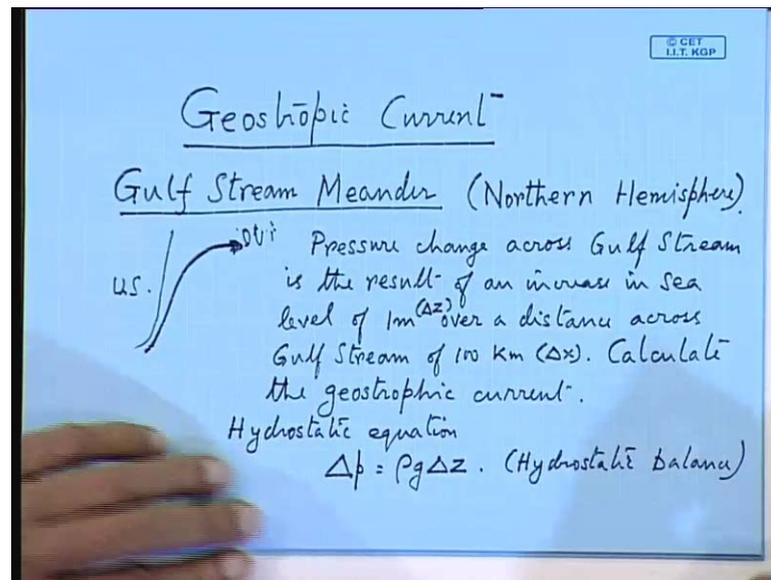 © CET
I.I.T. KGP
Geostropic Current
Gulf Stream Meander (Northern Hemisphere).
Pressure change across Gulf Stream
U.S.
is the result of an increase in sea
level of 1m (Δz) over a distance across
Gulf Stream of 100 Km (Δx). Calculate
the geostrophic current.
Hydrostatic equation
Δp = ρgΔz. (Hydrostatic balance)